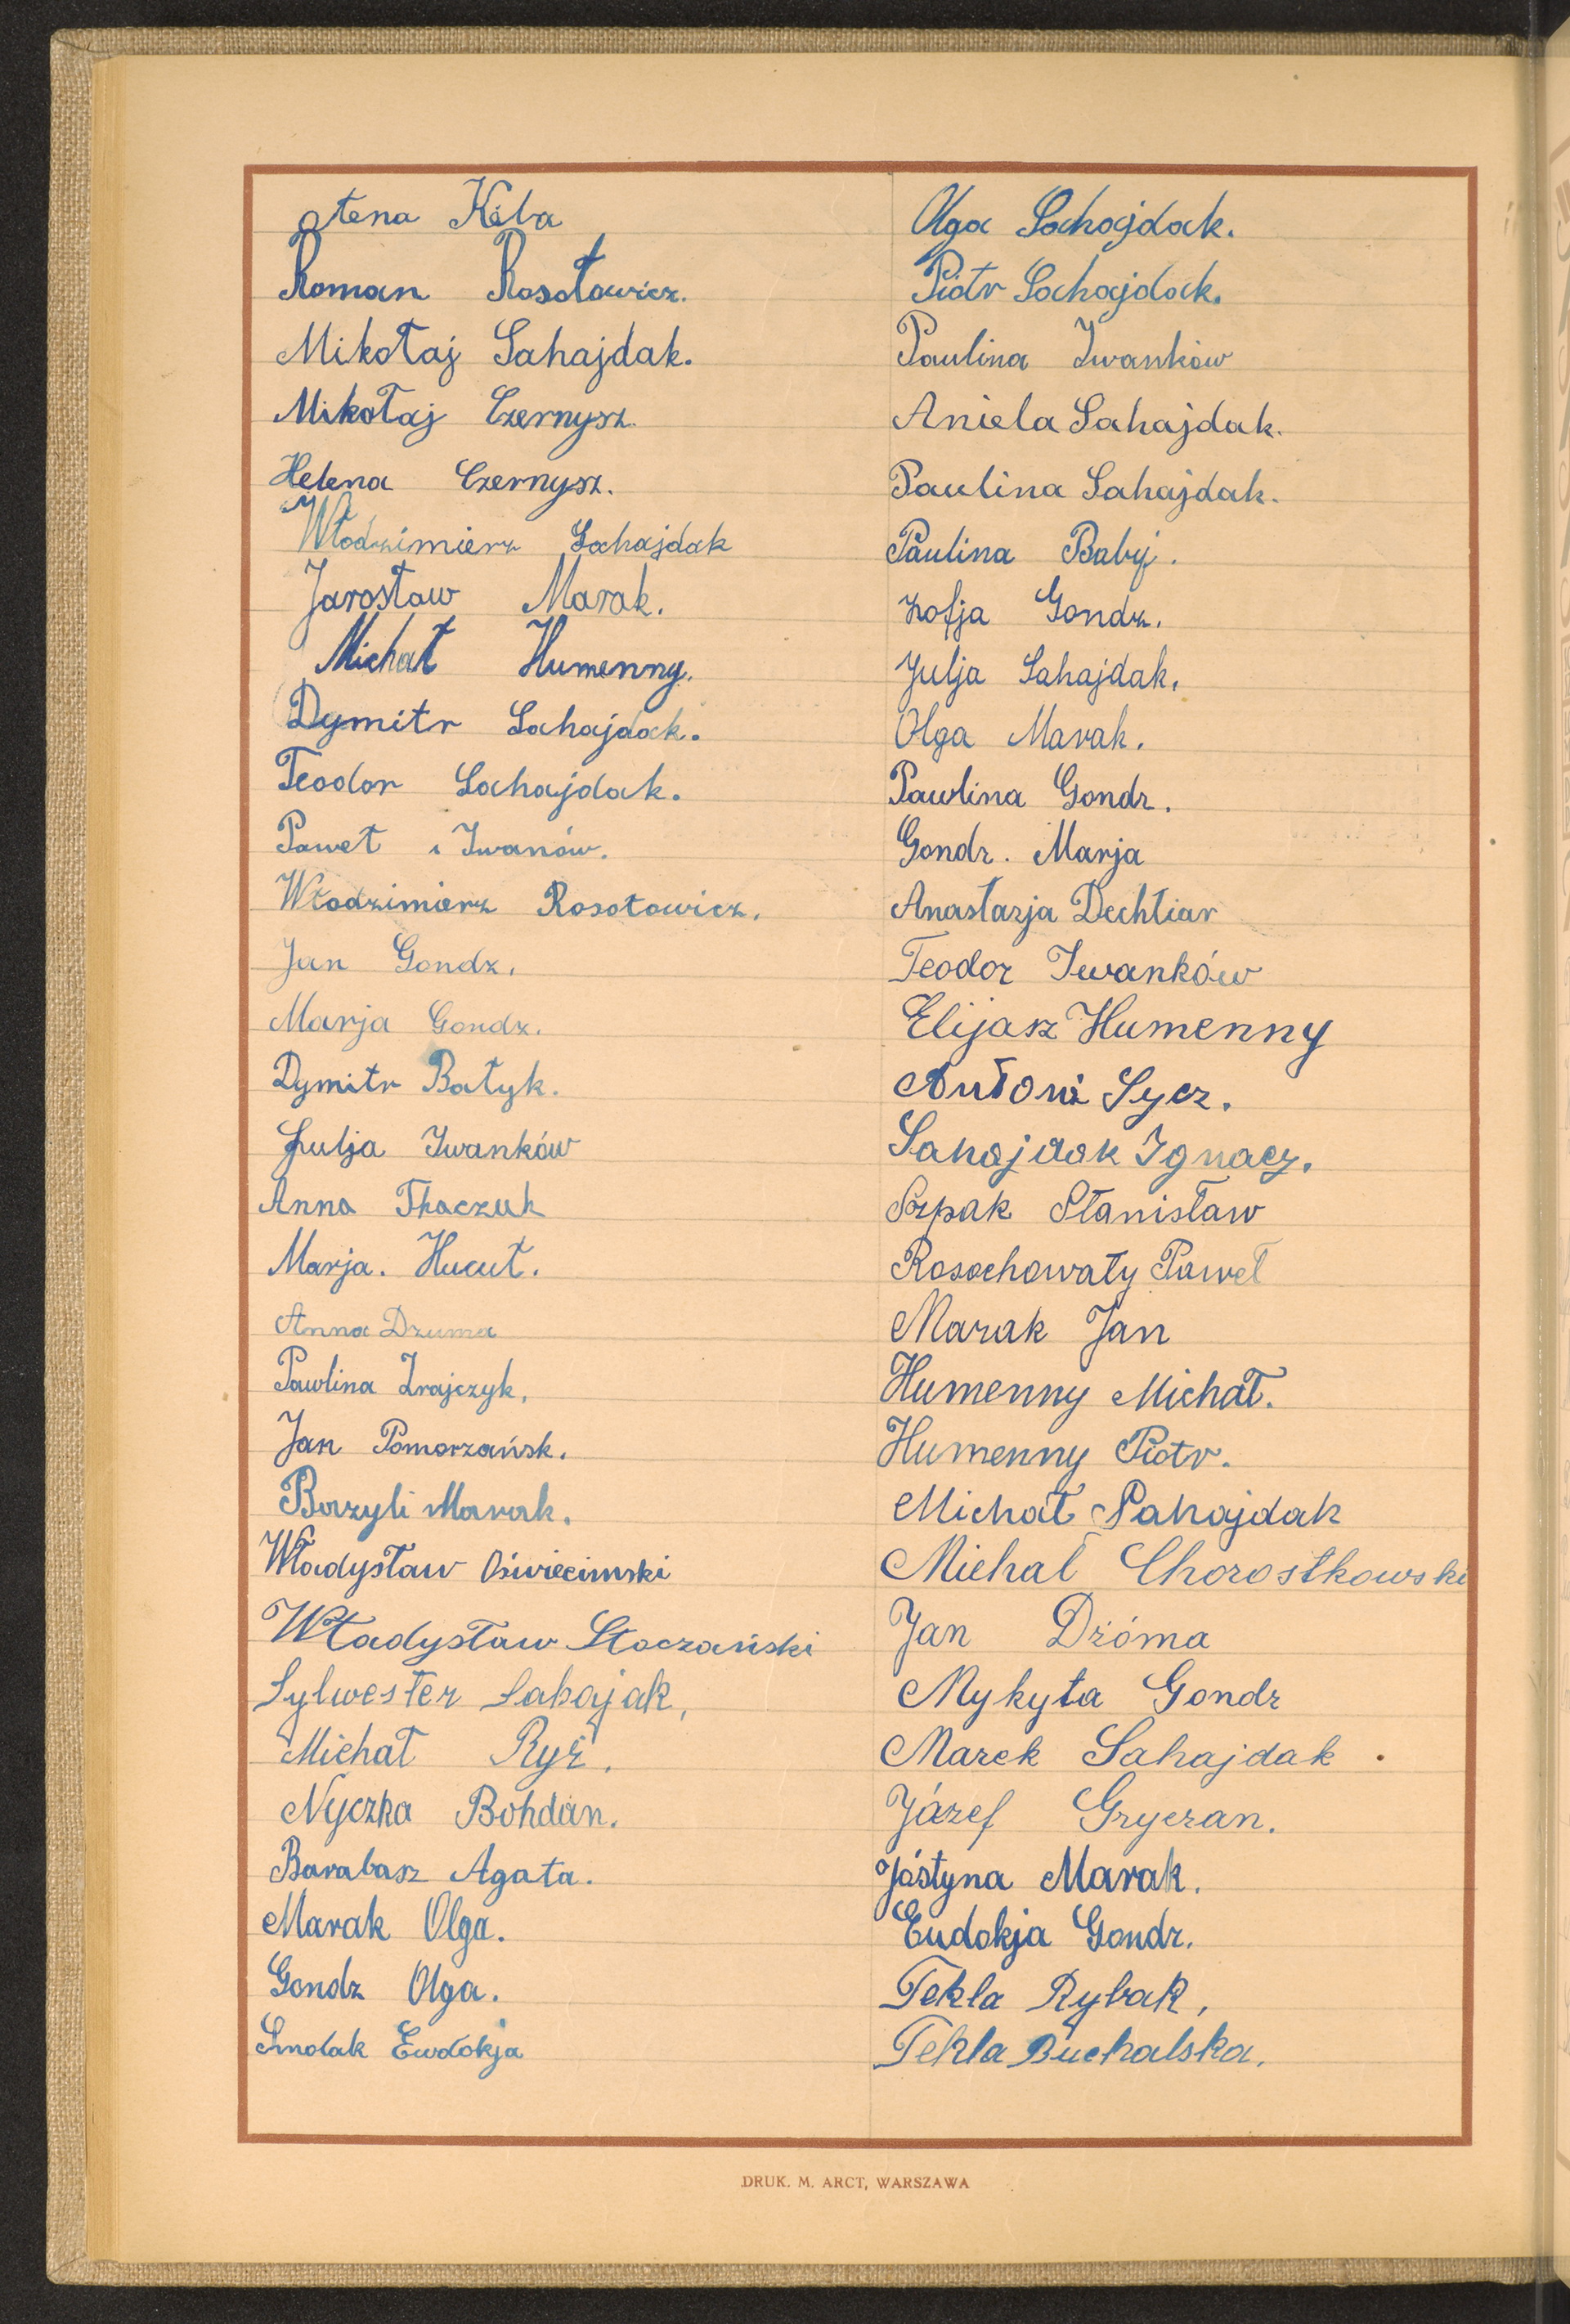 Olena Kiba
Roman Rosołowicz.
Mikołaj Sahajdak.
Mikołaj Czernysz.
Helena Czernysz.
Włodzimierz Sahajdak
Jarosław Marak.
Michał Humenny.
Dymitr Sahajdak.
Teodor Sahajdak.
Paweł Iwanów.
Włodzimierz Rosołowicz.
Jan Gondz.
Marja Gondz.
Dymitr Batyk.
Julja Iwanków
Anna Tkaczuk
Marja. Hucuł.
Anna Dzuma
Pawlina Zrajczyk,
Jan Pomorzańsk.
Bazyli Marak.
Władysław Oświecimski
Władysław Stoczański
Sylwester Sahajak,
Michał Ryż.
Nyczka Bohdan.
Barabasz Agata.
Marak Olga.
Gondz Olga.
Smolak Ewdokja
Olga Sahajdak.
Piotr Sahajdak.
Paulina Iwanków
Aniela Sahajdak.
Paulina Sahajdak.
Paulina Babij.
Zofja Gondz.
Julja Sahajdak.
Olga Marak.
Pawlina Gondz.
Gondz. Marja
Anastazja Dechtiar
Teodor Iwanków
Elijasz Humenny
Antoni Sycz.
Sahajdak Ignacy.
Szpak Stanisław
Rosochowaty Paweł
Marak Jan
Humenny Michał.
Humenny Piotr.
Michał Sahajdak
Michał Chorostkowski
Jan Dżóma
Mykyta Gondz
Marek Sahajdak.
Józef Gryczan.
Jóstyna Marak.
Eudokja Gondz.
Tekla Rybak,
Tekla Buchalska.
DRUK. M. ARCT, WARSZAWA